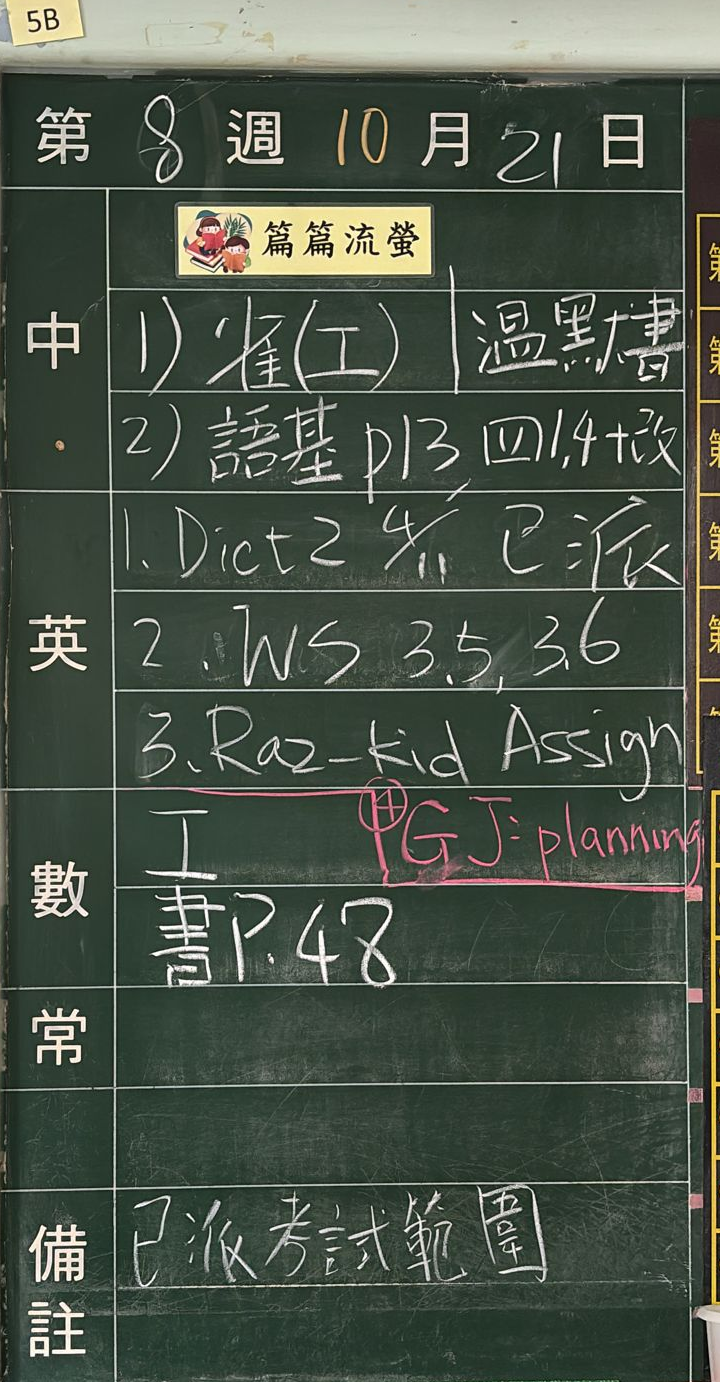 5B
第 8 週 10 月 21 日
篇篇流螢
中
1) 雀(工) | 溫默書
2) 語基 p13, 四1,4+改
英
1. Dict 2 已派
2. WS 3.5, 3.6
3. Raz-kid Assign
數
工
GJ: planning
書P.48
常
備註
已派考試範圍